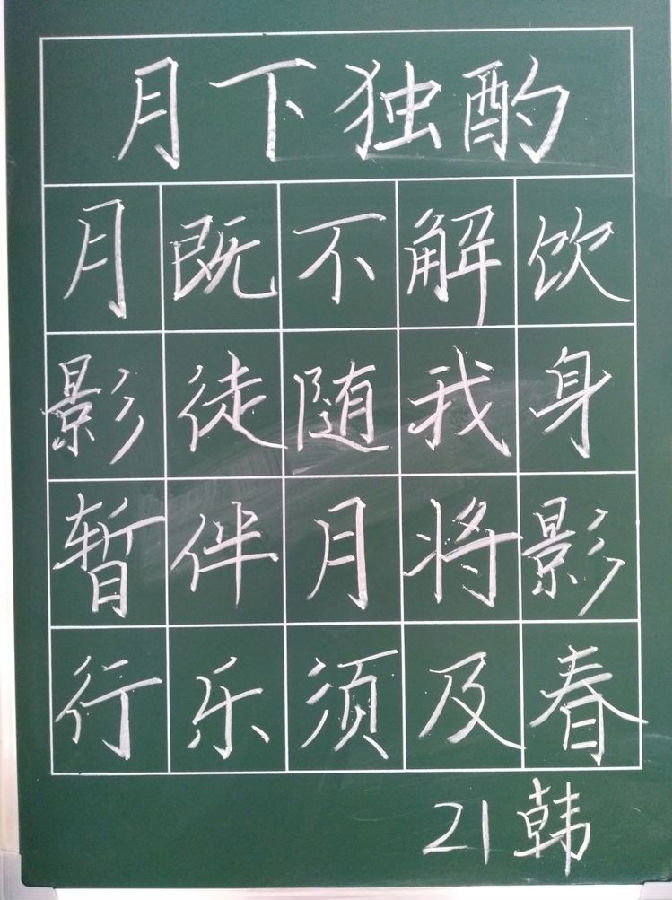 月下独酌
月既不解饮
影徒随我身
暂伴月将影
行乐须及春
21韩